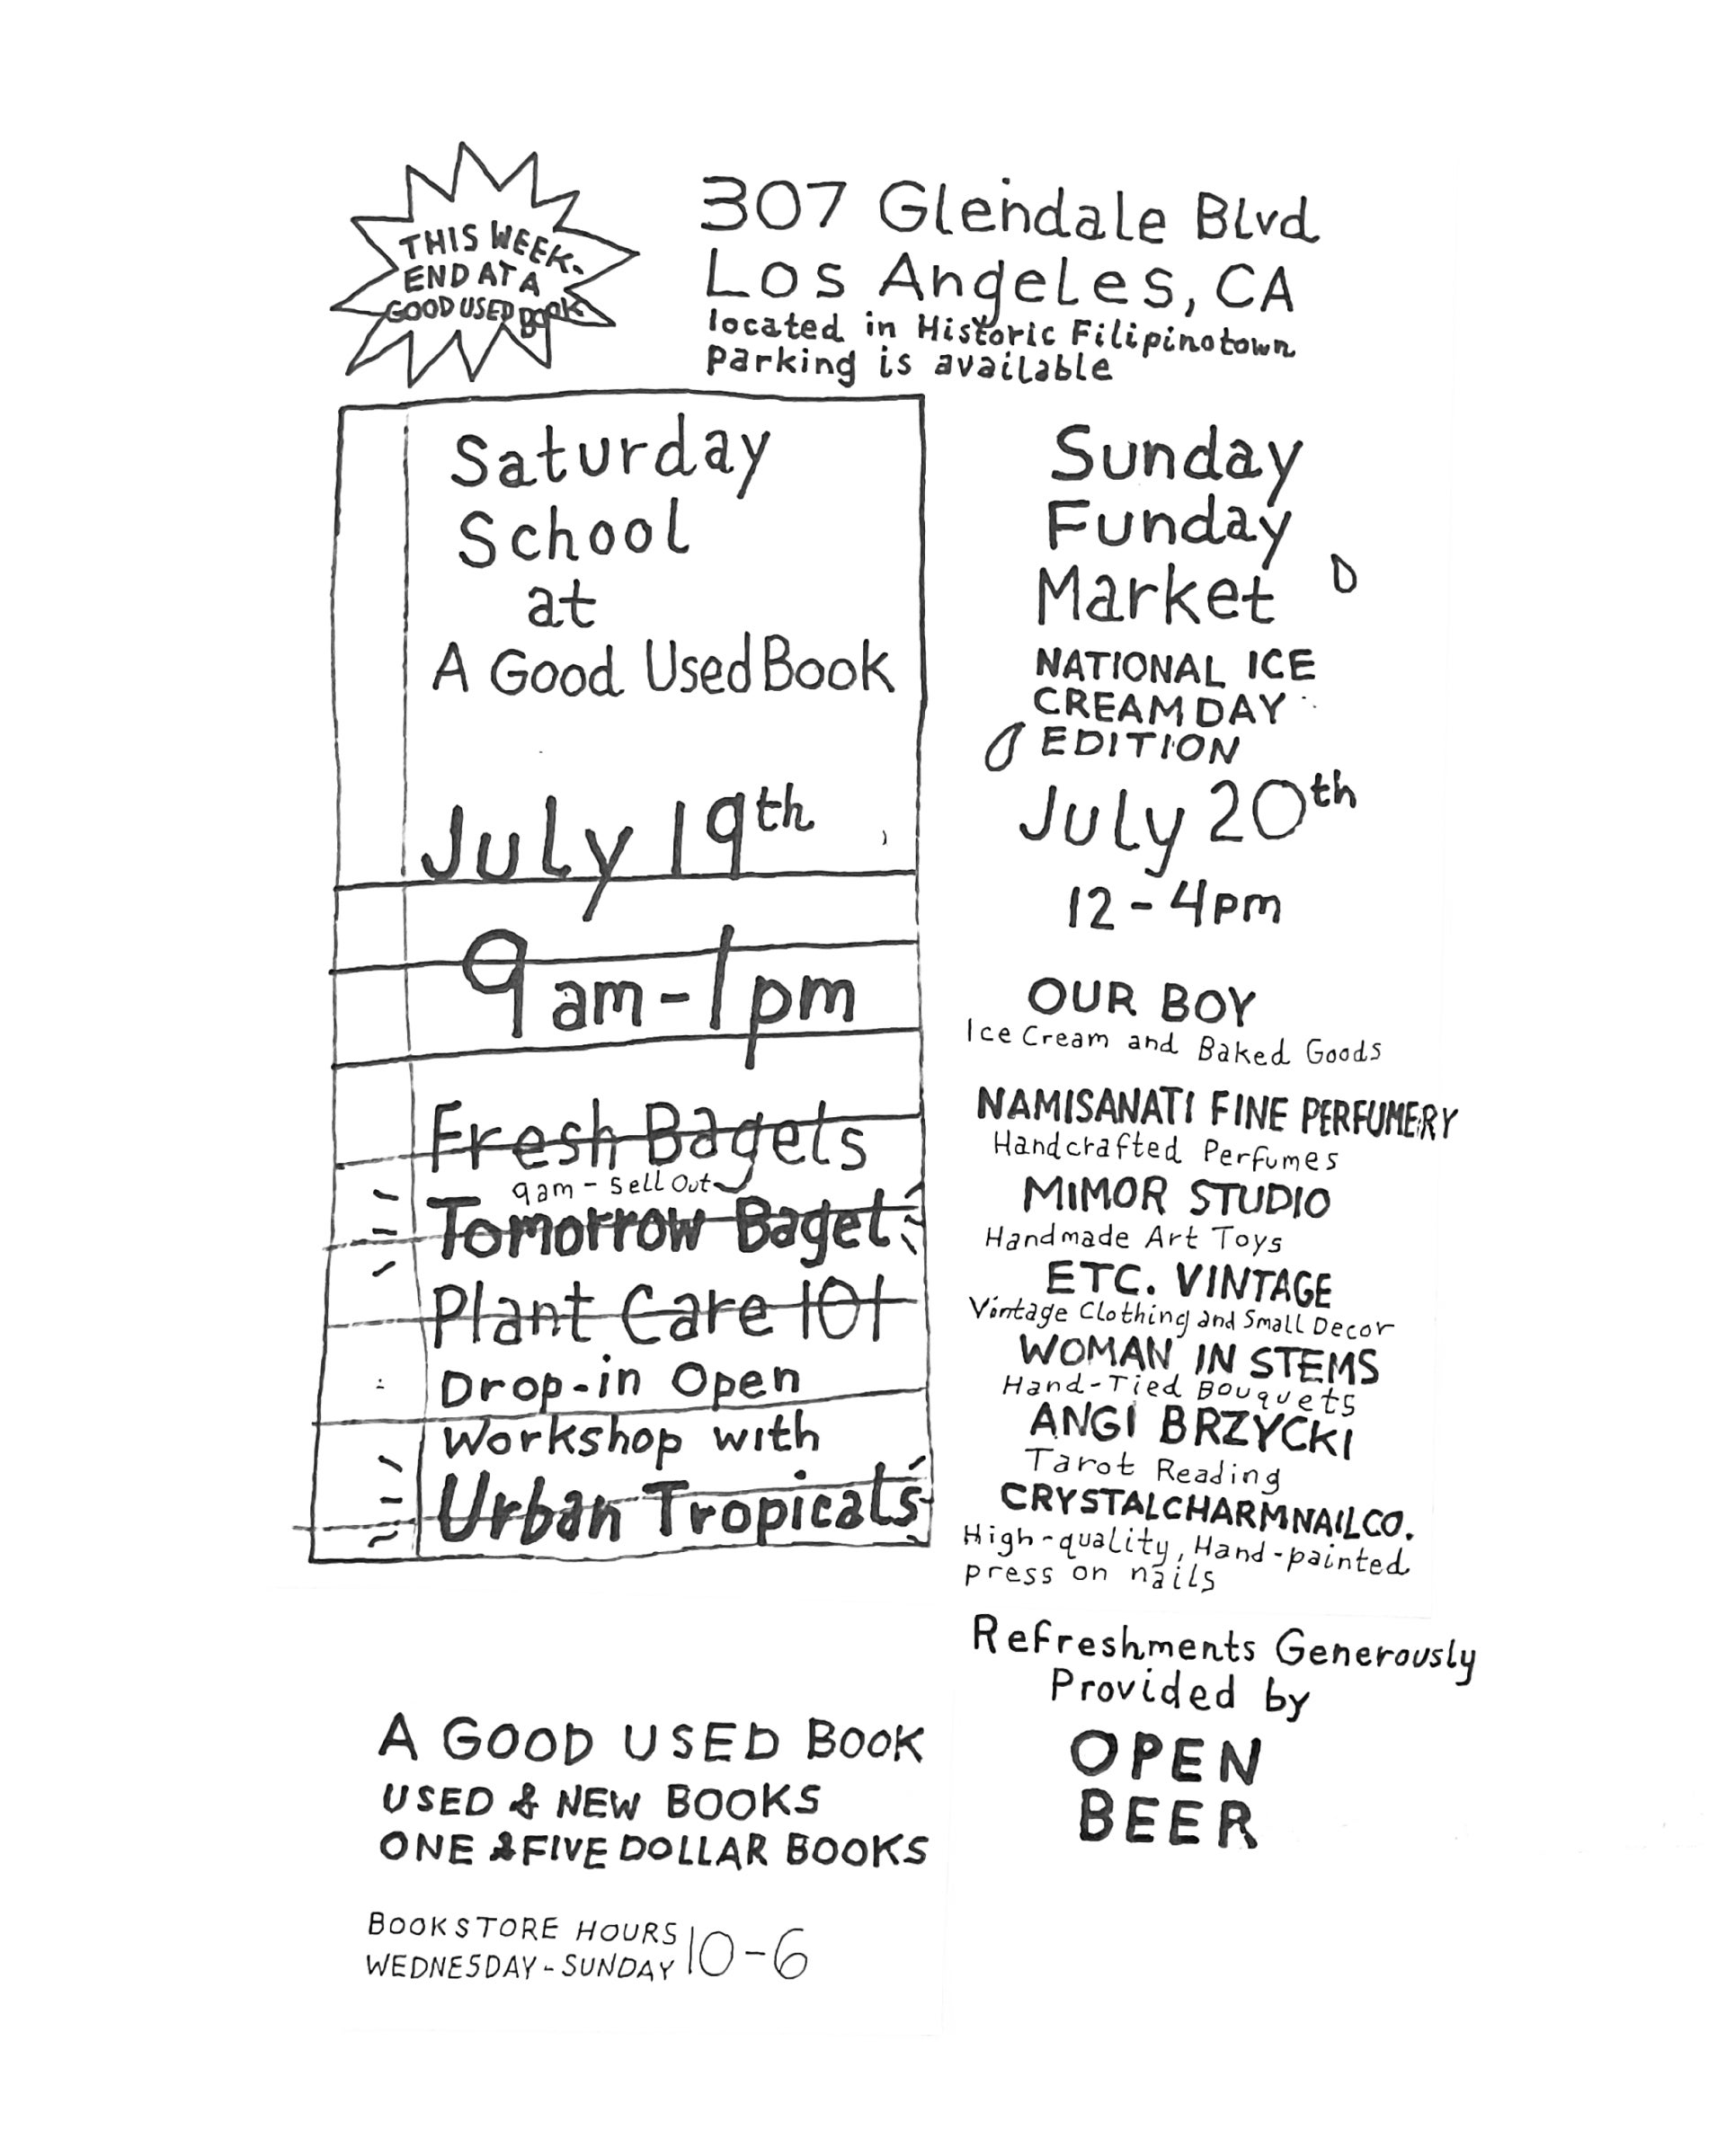 THIS WEEK-
END AT A
GOOD USED BOOK
307 Glendale Blvd
Los Angeles, CA
located in Historic Filipinotown
parking is available
Saturday
School
at
A Good Used Book
July 19th
9am-1pm
Fresh Bagels
9am - Sell Out
Tomorrow Bagel
Plant Care 101
Drop-in Open
Workshop with
Urban Tropicals
Sunday
Funday
Market
NATIONAL ICE
CREAM DAY
EDITION
July 20th
12-4pm
OUR BOY
Ice Cream and Baked Goods
NAMISANATI FINE PERFUMERY
Handcrafted Perfumes
MIMOR STUDIO
Handmade Art Toys
ETC. VINTAGE
Vintage Clothing and Small Decor
WOMAN IN STEMS
Hand-Tied Bouquets
ANGI BRZYCKI
Tarot Reading
CRYSTALCHARMNAILCO.
High-quality, Hand-painted
press on nails
Refreshments Generously
Provided by
OPEN
BEER
A GOOD USED BOOK
USED & NEW BOOKS
ONE & FIVE DOLLAR BOOKS
BOOKSTORE HOURS
WEDNESDAY-SUNDAY 10-6